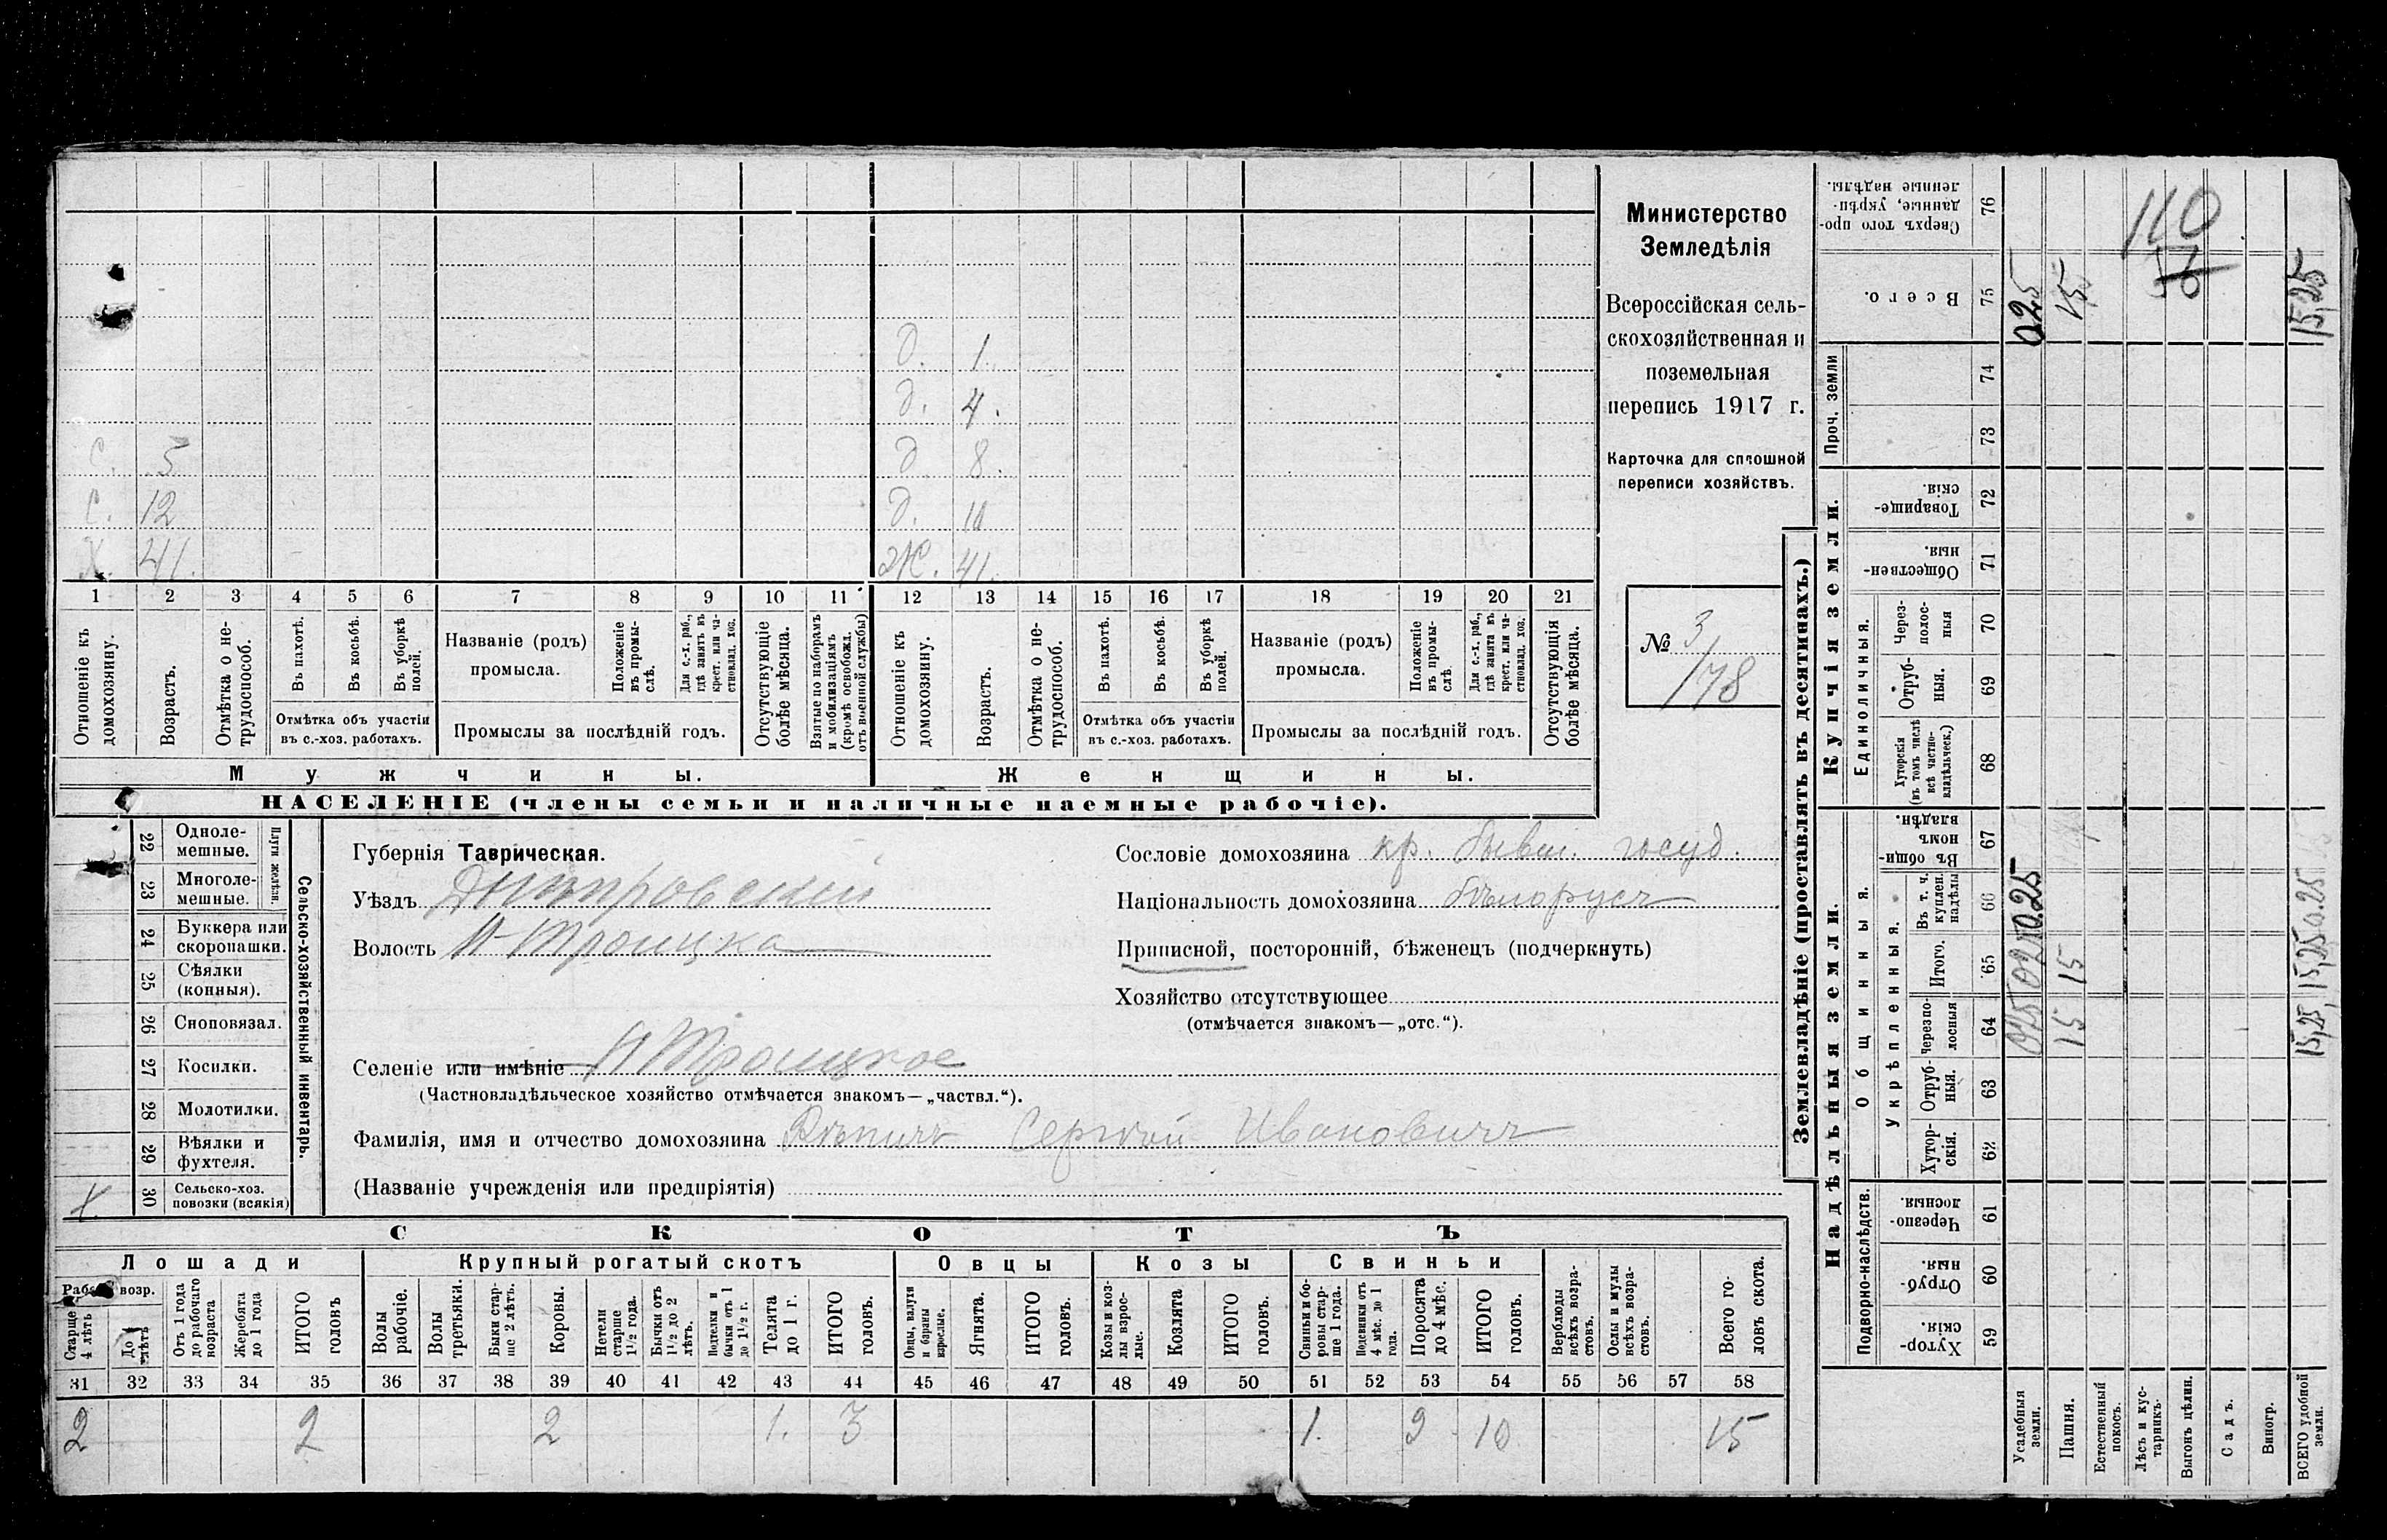 Министерство
Земледѣлія
Всероссійская сель-
скохозяйственная и
поземельная
перепись 1917 г.
Карточка для сплошной
переписи хозяйствъ.
№ 3/178
д. 1.
д. 4.
С. 5 д 8.
С. 12 д. 10
Х. 41. Ж. 41.
1 2 3 4 5 6 7 8 9 10 11 12 13 14 15 16 17 18 19 20 21
Отношеніе къ домохозяину.
Возрастъ.
Отмѣтка о не-трудоспособ.
Въ пахотѣ.
Въ косьбѣ.
Въ уборкѣ полей.
Отмѣтка объ участіи
въ с.-хоз. работахъ.
Названіе (родъ)
промысла.
Положеніе въ промы-слѣ.
Для с.-х. раб., гдѣ занятъ въ крест. или ча-стновлад. хоз.
Промыслы за послѣдній годъ.
Отсутствующіе болѣе мѣсяца.
Взятые по наборамъ и мобилизаціямъ (кромѣ освобожд. отъ военной службы)
Отношеніе къ домохозяину.
Возрастъ.
Отмѣтка о не-трудоспособ.
Въ пахотѣ.
Въ косьбѣ.
Въ уборкѣ полей.
Отмѣтка объ участіи
въ с.-хоз. работахъ.
Названіе (родъ)
промысла.
Положеніе въ промы-слѣ
Для с.-х. раб., гдѣ занята въ крест. или ча-стновлад. хоз.
Промыслы за послѣдній годъ.
Отсутствующія болѣе мѣсяца.
Мужчины. Женщины.
НАСЕЛЕНІЕ (члены семьи и наличные наемные рабочіе).
Сельско-хозяйственный инвентарь.
Плуги желѣзн.
22 Одноле-мешные.
23 Многоле-мешные.
24 Буккера или скоропашки.
25 Сѣялки (конныя).
26 Сноповязал.
27 Косилки.
28 Молотилки.
29 Вѣялки и фухтеля.
30 Сельско-хоз. повозки (всякія)
Губернія Таврическая.
Уѣздъ Днѣпровскій
Волость Н-Троицка
Селеніе или имѣніе Н Троицкое
(Частновладѣльческое хозяйство отмѣчается знакомъ—„частвл.“).
Фамилія, имя и отчество домохозяина Сергѣй Ивановичъ
(Названіе учрежденія или предпріятія)
Сословіе домохозяина кр. бывш. госуд.
Національность домохозяина бѣлорусъ
Приписной, посторонній, бѣженецъ (подчеркнуть)
Хозяйство отсутствующее
(отмѣчается знакомъ—„отс.“).
СКОТЪ
Лошади Крупный рогатый скотъ Овцы Козы Свиньи
возр.
Старше 4 лѣтъ
Отъ 1 года до рабочаго возраста
Жеребята до 1 года
ИТОГО головъ
Волы рабочіе.
Волы третьяки.
Быки стар-ше 2 лѣтъ.
Коровы.
Нетели старше 1½ года.
Бычки отъ 1½ до 2 лѣтъ.
Подтелки и бычки отъ 1 до 1½ г.
Телята до 1 г.
ИТОГО головъ.
Овцы, валухи и бараны взрослые.
Ягнята.
ИТОГО головъ.
Козы и коз-лы взрос-лые.
Козлята.
ИТОГО головъ.
Свиньи и бо-ровы стар-ше 1 года.
Подсвинки отъ 4 мѣс. до 1 года.
Поросята до 4 мѣс.
ИТОГО головъ.
Верблюды всѣхъ возра-стовъ.
Ослы и мулы всѣхъ возра-стовъ.
Всего го-ловъ скота.
31 32 33 34 35 36 37 38 39 40 41 42 43 44 45 46 47 48 49 50 51 52 53 54 55 56 57 58
2 2 2 1. 3 1. 9 10 15
Землевладѣніе (проставлять въ десятинахъ.)
Надѣльныя земли. Купчія земли. Проч. земли
Подворно-наслѣдств.
Общинныя.
Укрѣпленныя.
Единоличныя.
59 Хутор-скія.
60 Отруб-ныя.
61 Черезпо-лосныя
62 Хутор-скія.
63 Отруб-ныя.
64 Черезпо-лосныя
65 Итого.
66 Въ т. ч. куплен. надѣлы
67 Въ общи-номъ владѣн.
68 Хуторскія (въ томъ числѣ всѣ частно-владѣльческ.)
69 Отруб-ныя.
70 Через-полос-ныя
71 Обществен-ныя.
72 Товарище-скія.
73
74
75 Всего.
76 Сверхъ того про-данные, укрѣп-ленные надѣлы.
Усадебныя земли.
025 025 025
Пашня.
15 15 15
Естественный покосъ.
Лѣсъ и кус-тарникъ.
Выгонъ цѣлин.
Садъ.
Виногр.
ВСЕГО удобной земли.
15,25, 15,25 0.25 15,25
110